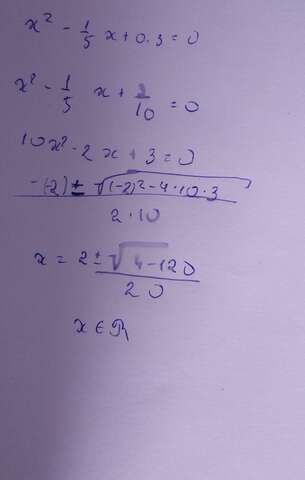 x² - 1/5 x + 0.3 = 0
x² - 1/5 x + 3/10 = 0
10x² - 2x + 3 = 0
-(-2) ± √(-2)² - 4·10·3
2·10
x = 2 ± √4-120
20
x ∈ ℝ